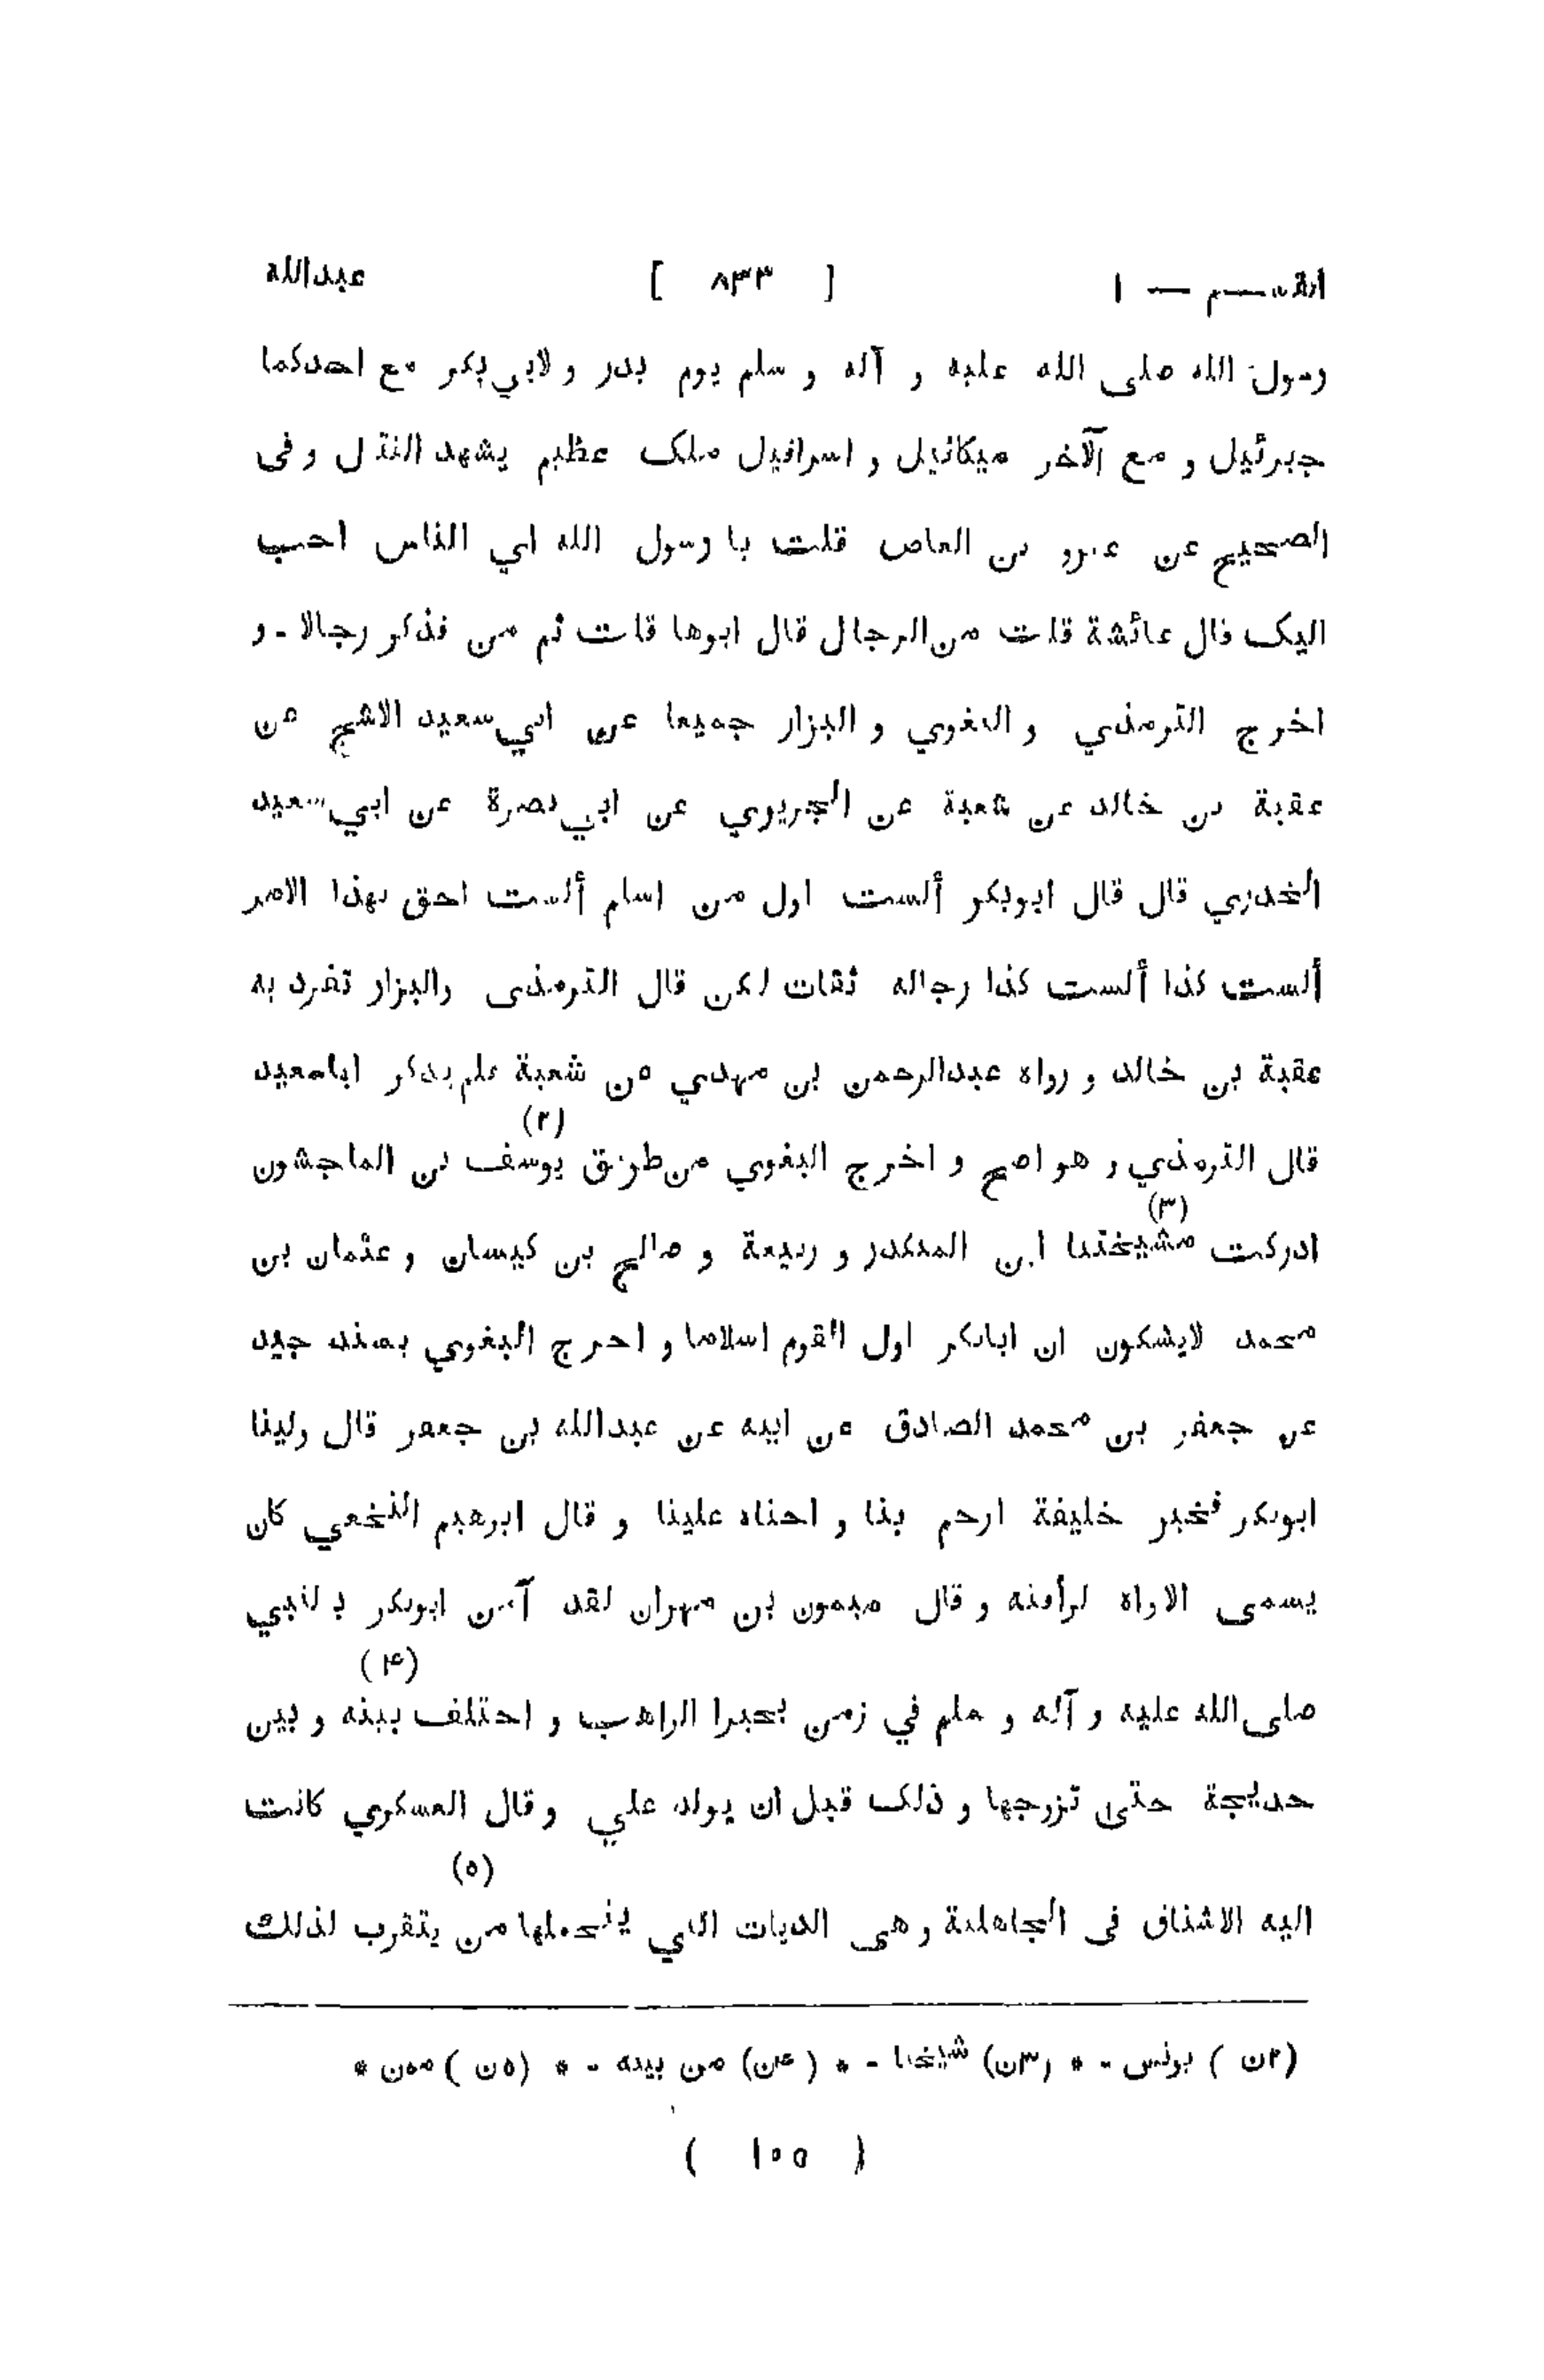 القسم — ١ [ ٨٣٣ ] عبدالله
رسول الله صلى الله عليه و آله و سلم يوم بدر و لابي بكر مع احدكما
جبرئيل و مع الآخر ميكائيل و اسرافيل ملک عظيم يشهد القتال و فى
الصحيح عن عمرو بن العاص قلت يا رسول الله اي الناس احب
اليک قال عائشة قلت من الرجال قال ابوها قلت ثم من فذكر رجالا - و
اخرج الترمذي و البغوي و البزار جميعا عن ابي سعيد الاشج عن
عقبة بن خالد عن شعبة عن الجريري عن ابي نصرة عن ابي سعيد
الخدري قال قال ابوبكر ألست اول من اسلم ألست احق بهذا الامر
ألست كذا ألست كذا رجاله ثقات لكن قال الترمذى والبزار تفرد به
عقبة بن خالد و رواه عبدالرحمن بن مهدي عن شعبة فلم يذكر اباسعيد
قال الترمذي و هو اصح و اخرج البغوي من طريق يوسف (٢) بن الماجشون
ادركت مشيختنا (٣) ابن المنكدر و ربيعة و صالح بن كيسان و عثمان بن
محمد لايشكون ان ابابكر اول القوم اسلاما و اخرج البغوي بسند جيد
عن جعفر بن محمد الصادق عن ابيه عن عبدالله بن جعفر قال ولينا
ابوبكر فخير خليفة ارحم بنا و احناه علينا و قال ابرهيم النخعي كان
يسمى الاواه لرأفته و قال ميمون بن مهران لقد آمن ابوبكر بالنبي
صلى الله عليه و آله و سلم في زمن بحيرا الراهب و اختلف بينه (۴) و بين
خديجة حتى تزوجها و ذلک قبل ان يولد علي و قال العسكري كانت
اليه الاشناق فى الجاهلية و هى الديات التي يتحملها من (٥) يتقرب لذلك
(٢ن) يونس - * (٣ن) شيخنا - * (۴ن) من بينه - * (٥ن) ممن *
( ١٠٥ )